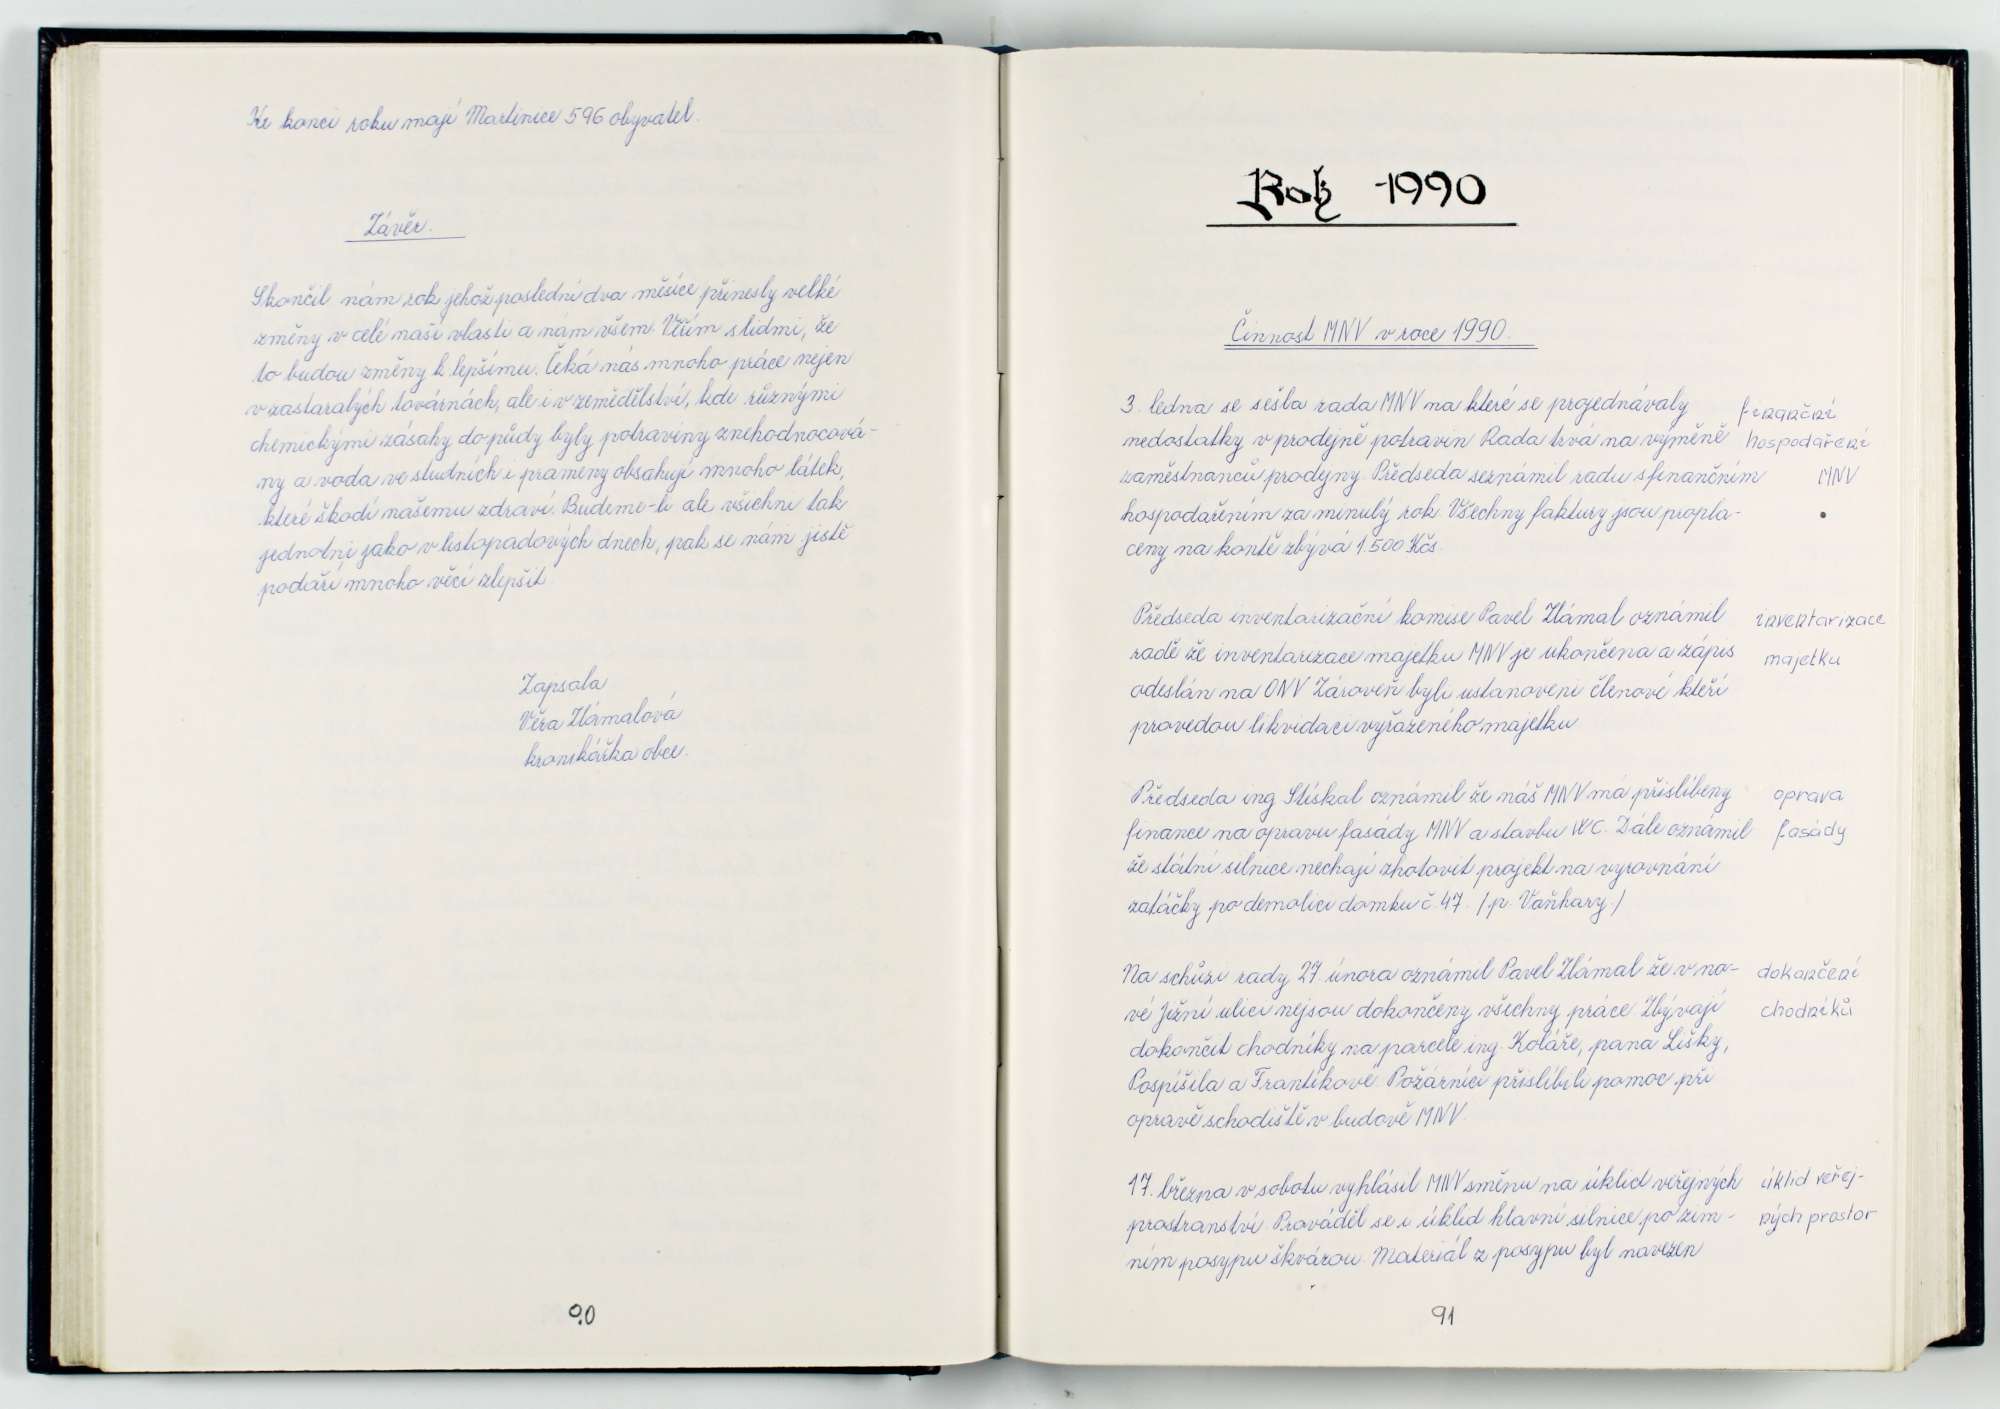 Ke konci roku mají Martinice 596 obyvatel.
Závěr.
Skončil nám rok jehož poslední dva měsíce přinesly velké
změny v celé naší vlasti a nám všem. Věřím s lidmi, že
to budou změny k lepšímu. Čeká nás mnoho práce nejen
v zastaralých továrnách, ale i v zemědělství, kde různými
chemickými zásahy do půdy byly potraviny znehodnocová-
ny a voda ve studních i prameny obsahují mnoho látek,
které škodí našemu zdraví. Budeme-li ale všichni tak
jednotni jako v listopadových dnech, pak se nám jistě
podaří mnoho věcí zlepšit.
Zapsala
Věra Zlámalová
kronikářka obce.
90
Rok 1990
Činnost MNV v roce 1990.
3. ledna se sešla rada MNV na které se projednávaly
nedostatky v prodejně potravin Rada trvá na výměně
zaměstnanců prodejny. Předseda seznámil radu s finančním
hospodařením za minulý rok. Všechny faktury jsou propla-
ceny na kontě zbývá 1.500 Kčs.
finanční
hospodaření
MNV
Předseda inventarizační komise Pavel Zlámal oznámil
radě že inventarizace majetku MNV je ukončena a zápis
odeslán na ONV Zároveň byli ustanoveni členové kteří
provedou likvidaci vyřazeného majetku
inventarizace
majetku
Předseda ing Stískal oznámil že náš MNV má přislíbeny
finance na opravu fasády MNV a stavbu WC. Dále oznámil
že státní silnice nechají zhotovit projekt na vyrovnání
zatáčky po demolici domku č. 47. /p. Vaňhary./
oprava
fasády
Na schůzi rady 27. února oznámil Pavel Zlámal že v no-
vé Jižní ulici nejsou dokončeny všechny práce. Zbývají
dokončit chodníky na parcele ing. Koláře, pana Lišky,
Pospíšila a Frantíkové. Požárníci přislíbili pomoc při
opravě schodiště v budově MNV.
dokončení
chodníků
17. března v sobotu vyhlásil MNV směnu na úklid veřejných
prostranství. Prováděl se i úklid hlavní silnice po zim-
ním posypu škvárou. Materiál z posypu byl navezen
úklid veřej-
ných prostor
91